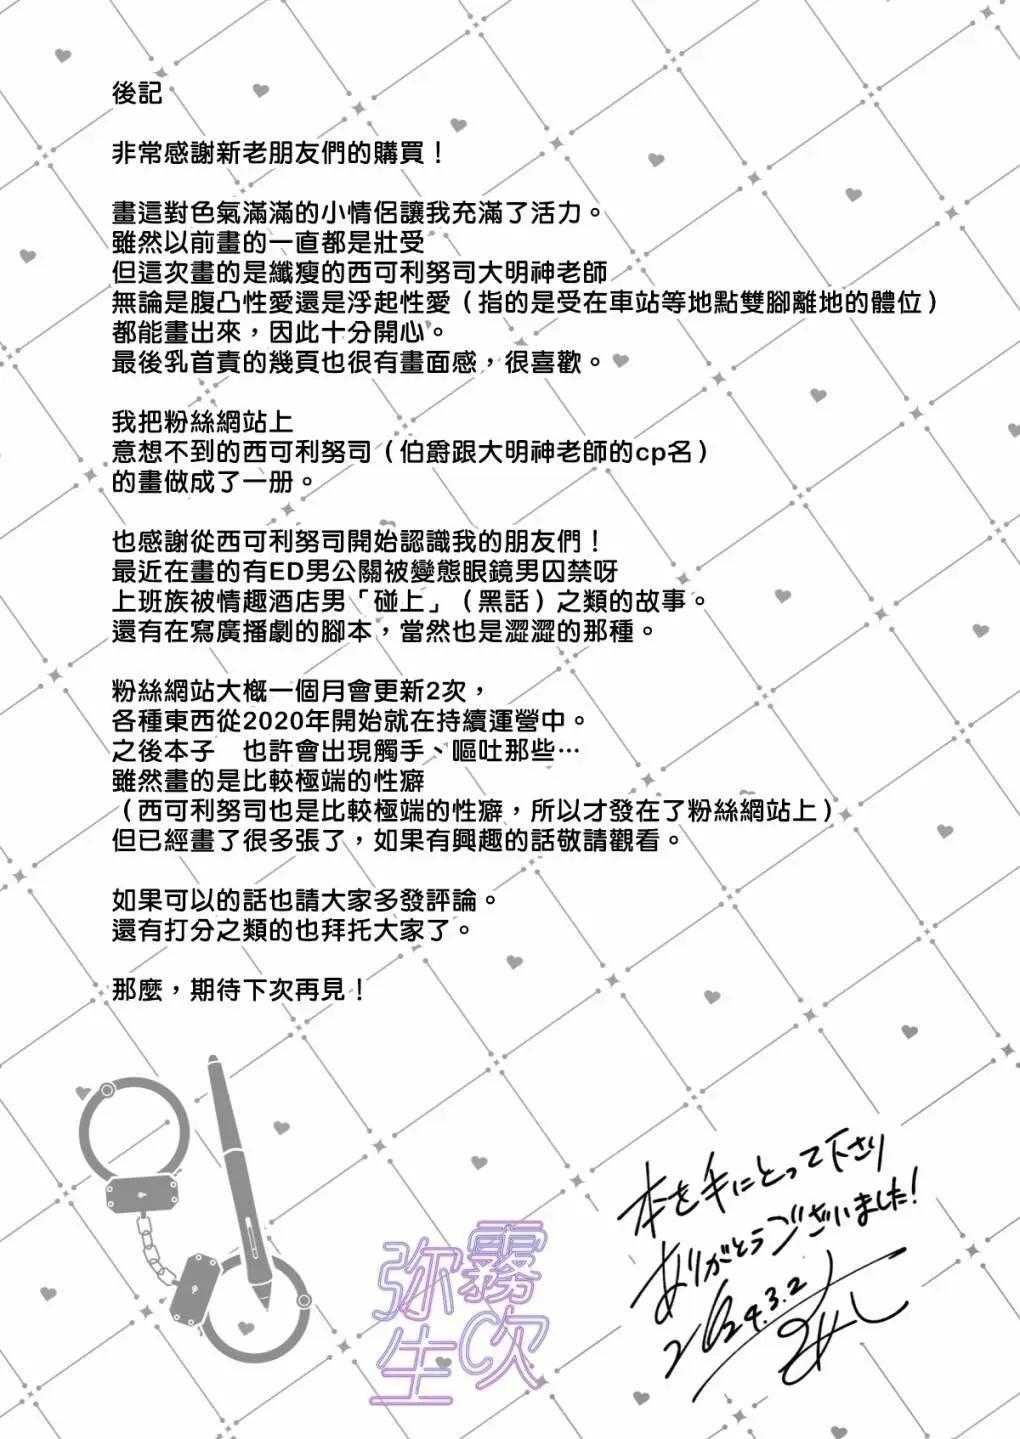 後記
非常感謝新老朋友們的購買！
畫這對色氣滿滿的小情侶讓我充滿了活力。
雖然以前畫的一直都是壯受
但這次畫的是纖瘦的西可利努司大明神老師
無論是腹凸性愛還是浮起性愛（指的是受在車站等地點雙腳離地的體位）
都能畫出來，因此十分開心。
最後乳首責的幾頁也很有畫面感，很喜歡。
我把粉絲網站上
意想不到的西可利努司（伯爵跟大明神老師的cp名）
的畫做成了一册。
也感謝從西可利努司開始認識我的朋友們！
最近在畫的有ED男公關被變態眼鏡男囚禁呀
上班族被情趣酒店男「碰上」（黑話）之類的故事。
還有在寫廣播劇的腳本，當然也是澀澀的那種。
粉絲網站大概一個月會更新2次，
各種東西從2020年開始就在持續運營中。
之後本子　也許會出現觸手、嘔吐那些…
雖然畫的是比較極端的性癖
（西可利努司也是比較極端的性癖，所以才發在了粉絲網站上）
但已經畫了很多張了，如果有興趣的話敬請觀看。
如果可以的話也請大家多發評論。
還有打分之類的也拜托大家了。
那麼，期待下次再見！
本を手にとって下さり
ありがとうございました！
2024.3.2
霧次
弥生